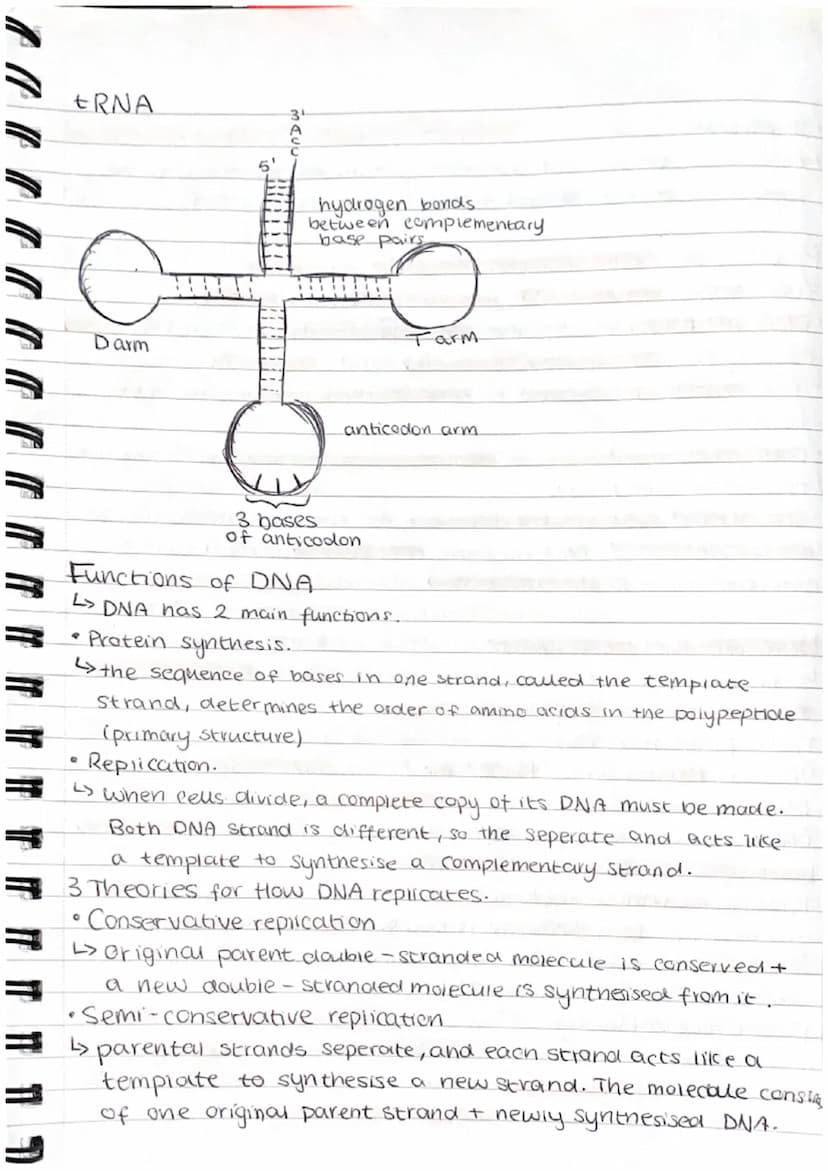 tRNA
3'
A
C
C
5'
hydrogen bonds
between complementary
base pairs
D arm
T arm
anticodon arm
3 bases
of anticodon
Functions of DNA
↳ DNA has 2 main functions.
• Protein synthesis.
↳ the sequence of bases in one strand, called the template
strand, determines the order of amino acids in the polypeptide
(primary structure)
• Replication.
↳ When cells divide, a complete copy of its DNA must be made.
Both DNA strand is different, so the seperate and acts like
a template to synthesise a complementary strand.
3 Theories for How DNA replicates.
• Conservative replication
↳ Original parent double-stranded molecule is conserved +
a new double-stranded molecule is synthesised from it.
• Semi-conservative replication
↳ parental strands seperate, and each strand acts like a
template to synthesise a new strand. The molecule
of one original parent strand + newly synthesised DNA.